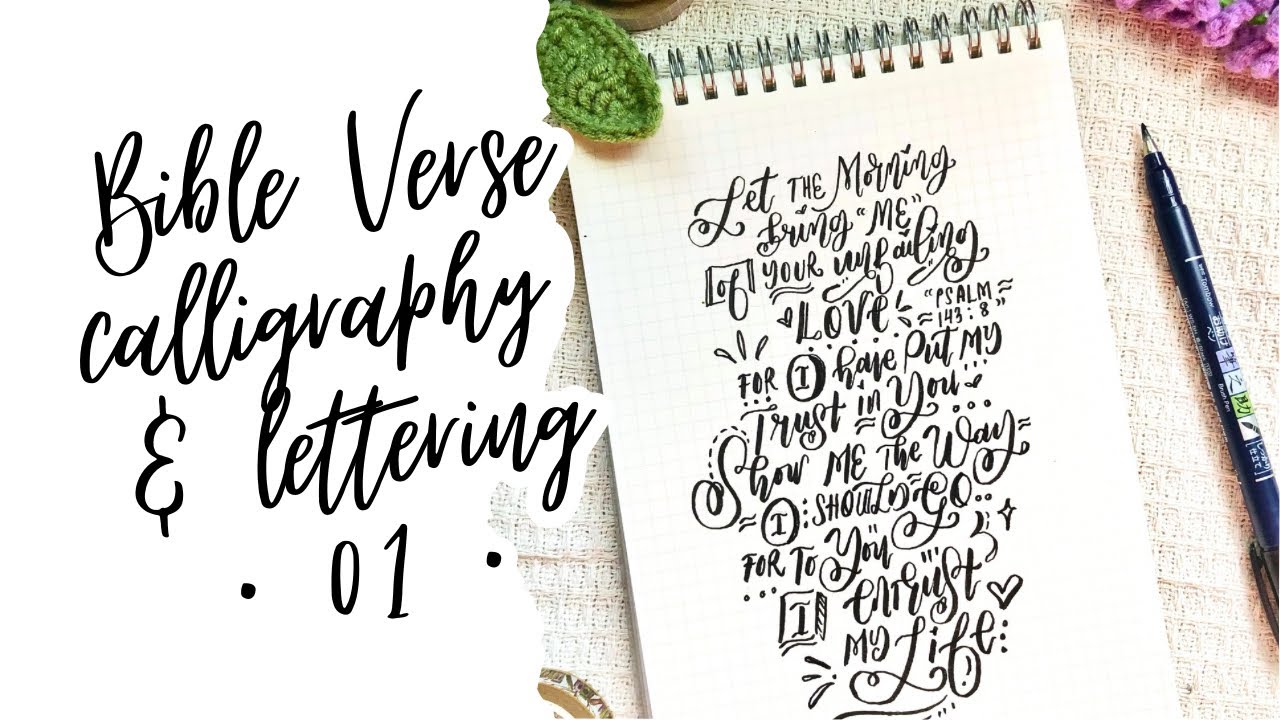 Bible Verse
calligraphy
& lettering
• 01 •
Let THE Morning
bring "ME"
of YOUR unfailing
LOVE "PSALM
143:8"
FOR I have put MY
Trust in You
Show ME THE Way
I SHOULD GO
FOR TO YOU
I ENTRUST
MY Life
Tombow